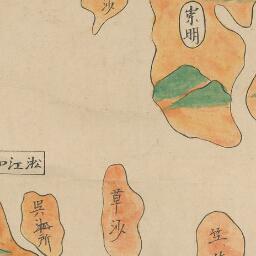 沙
崇明
淞江口
吳淞所
草沙
竺